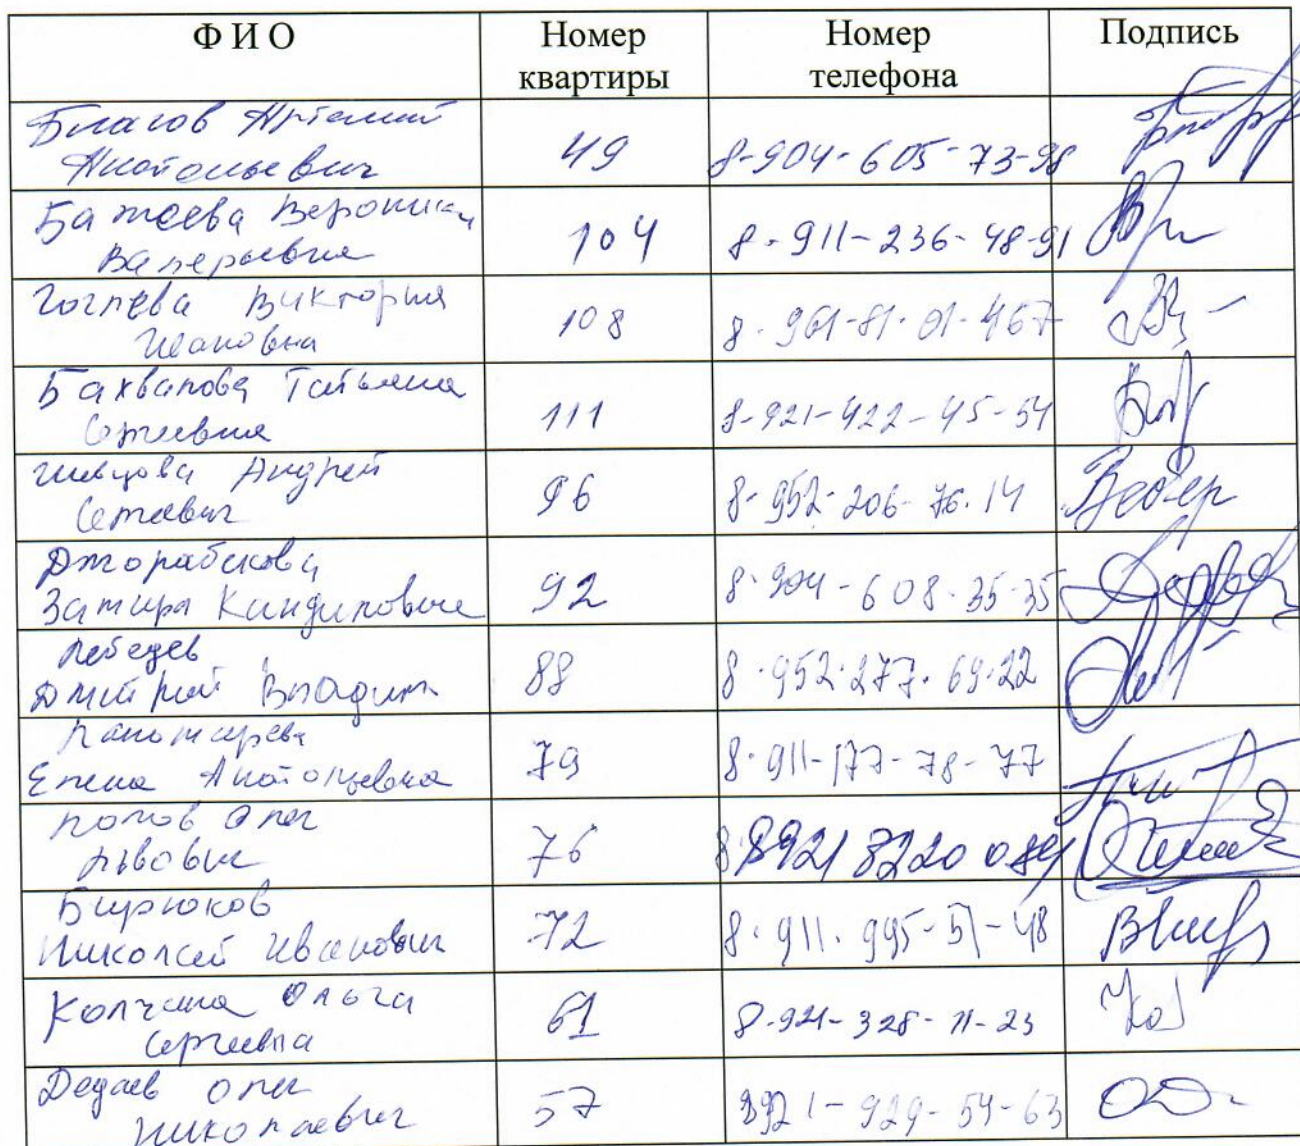 Ф И О Номер квартиры Номер телефона Подпись
Благов Артемий
Анатольевич 49 8-904-605-73-98
Вероника
Валерьевна 104 8-911-236-48-91
Гоглева Виктория
Ивановна 108 8-961-81-01-467
Бахвалова Татьяна
Сергеевна 111 8-921-422-45-54
Андрей
Сергеевич 96 8-952-206-76-14
92 8-904-608-35-35
Лебедев
Дмитрий Владим 88 8-952-277-69-22
Елена Анатольевна 79 8-911-177-78-77
Попов Олег
Львович 76 8 8921 3220 084
Бирюков
Николай Иванович 72 8-911-995-51-48
Колчина Ольга
Сергеевна 61 8-921-328-71-23
Дедаев Олег
Николаевич 57 8921-929-54-63